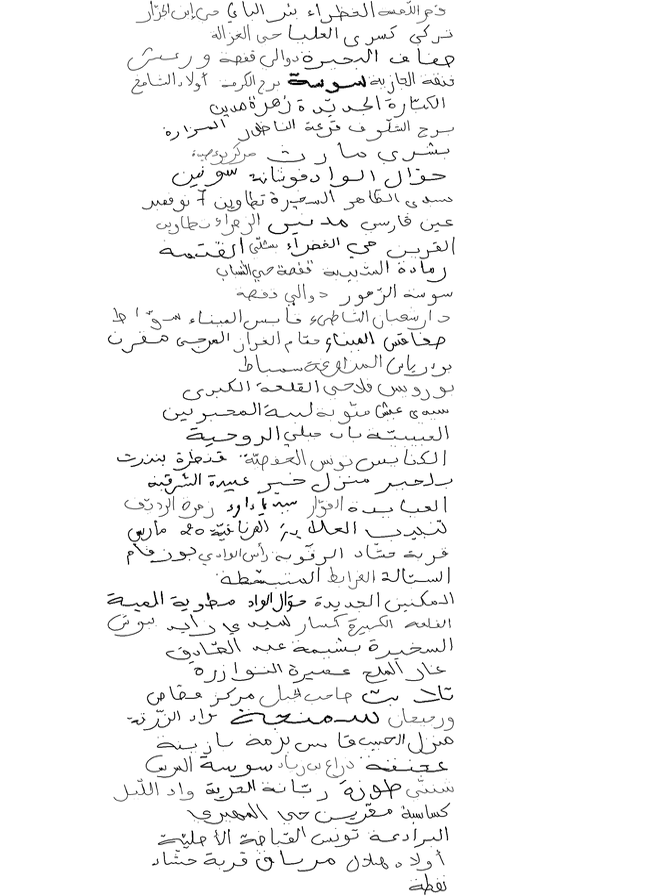 الخضراء بئر الباي حي إبن الجزار
تركي كسرى العليا حي الغزالة
ضفاف البحيرة دوالي قفصة ورغش
سوسة برج الكرمة أولاد الشامخ
الكبّارة الجديدة زهرة مدين
برج الطفّوف قرعة الناظور السرارة
بشري مارث مركز بوعصيدة
حوّال الواد فوشانة سونين
سيدي الظاهر السخيرة تطاوين 7 نوفمبر
عين فارسي مدنين الزهراء تطاوين
القرين حي الخضراء سنثلي القتمة
رمادة الذيبية قفصة حي الشباب
سوسة الزهور دوالي قفصة
دار شعبان الشاطىء قابس الميناء سوق الأحد
صفاقس الميناء حمّام الغزاز العرجى مقرن
بورياس المزارعة سمباط
بوروبس فلاحي القلعة الكبرى
سيدي عيش منوبة ليسة المحبوبين
العيبيتة باب جبلي الروحية
الكنايس تونس الحفصيّة قنطرة بنزرت
بلخير منزل خير عبيدة الشرقية
العبايدة الفوّار سيدي داود زهرة الرديّف
20 مارس
قرية حشّاد الرقوبة رأس الوادي بوزقام
الستالة الفرايط المنبسطة
المكنين الجديدة حوّال الواد مطوية العية
القلعة الكبيرة كسار سيدي زايد
السخيرة بشيمة عبد الصّادق
غار الملح عميرة النوازرة
تالابت صاحب الجبل مركز عقاص
ورميعان سمنجة واد الزرقة
منزل الحبيب قابس بزمة بازينة
عجنقة ذراع بن زياد سوسة
شنني طوزة ربّانة القرية واد اللّيل
كساسبة مقرين حي المهيري
البرادعة تونس القباضة الأصليّة
أولاد هلال مرساق قرية حشّاد
نفطة